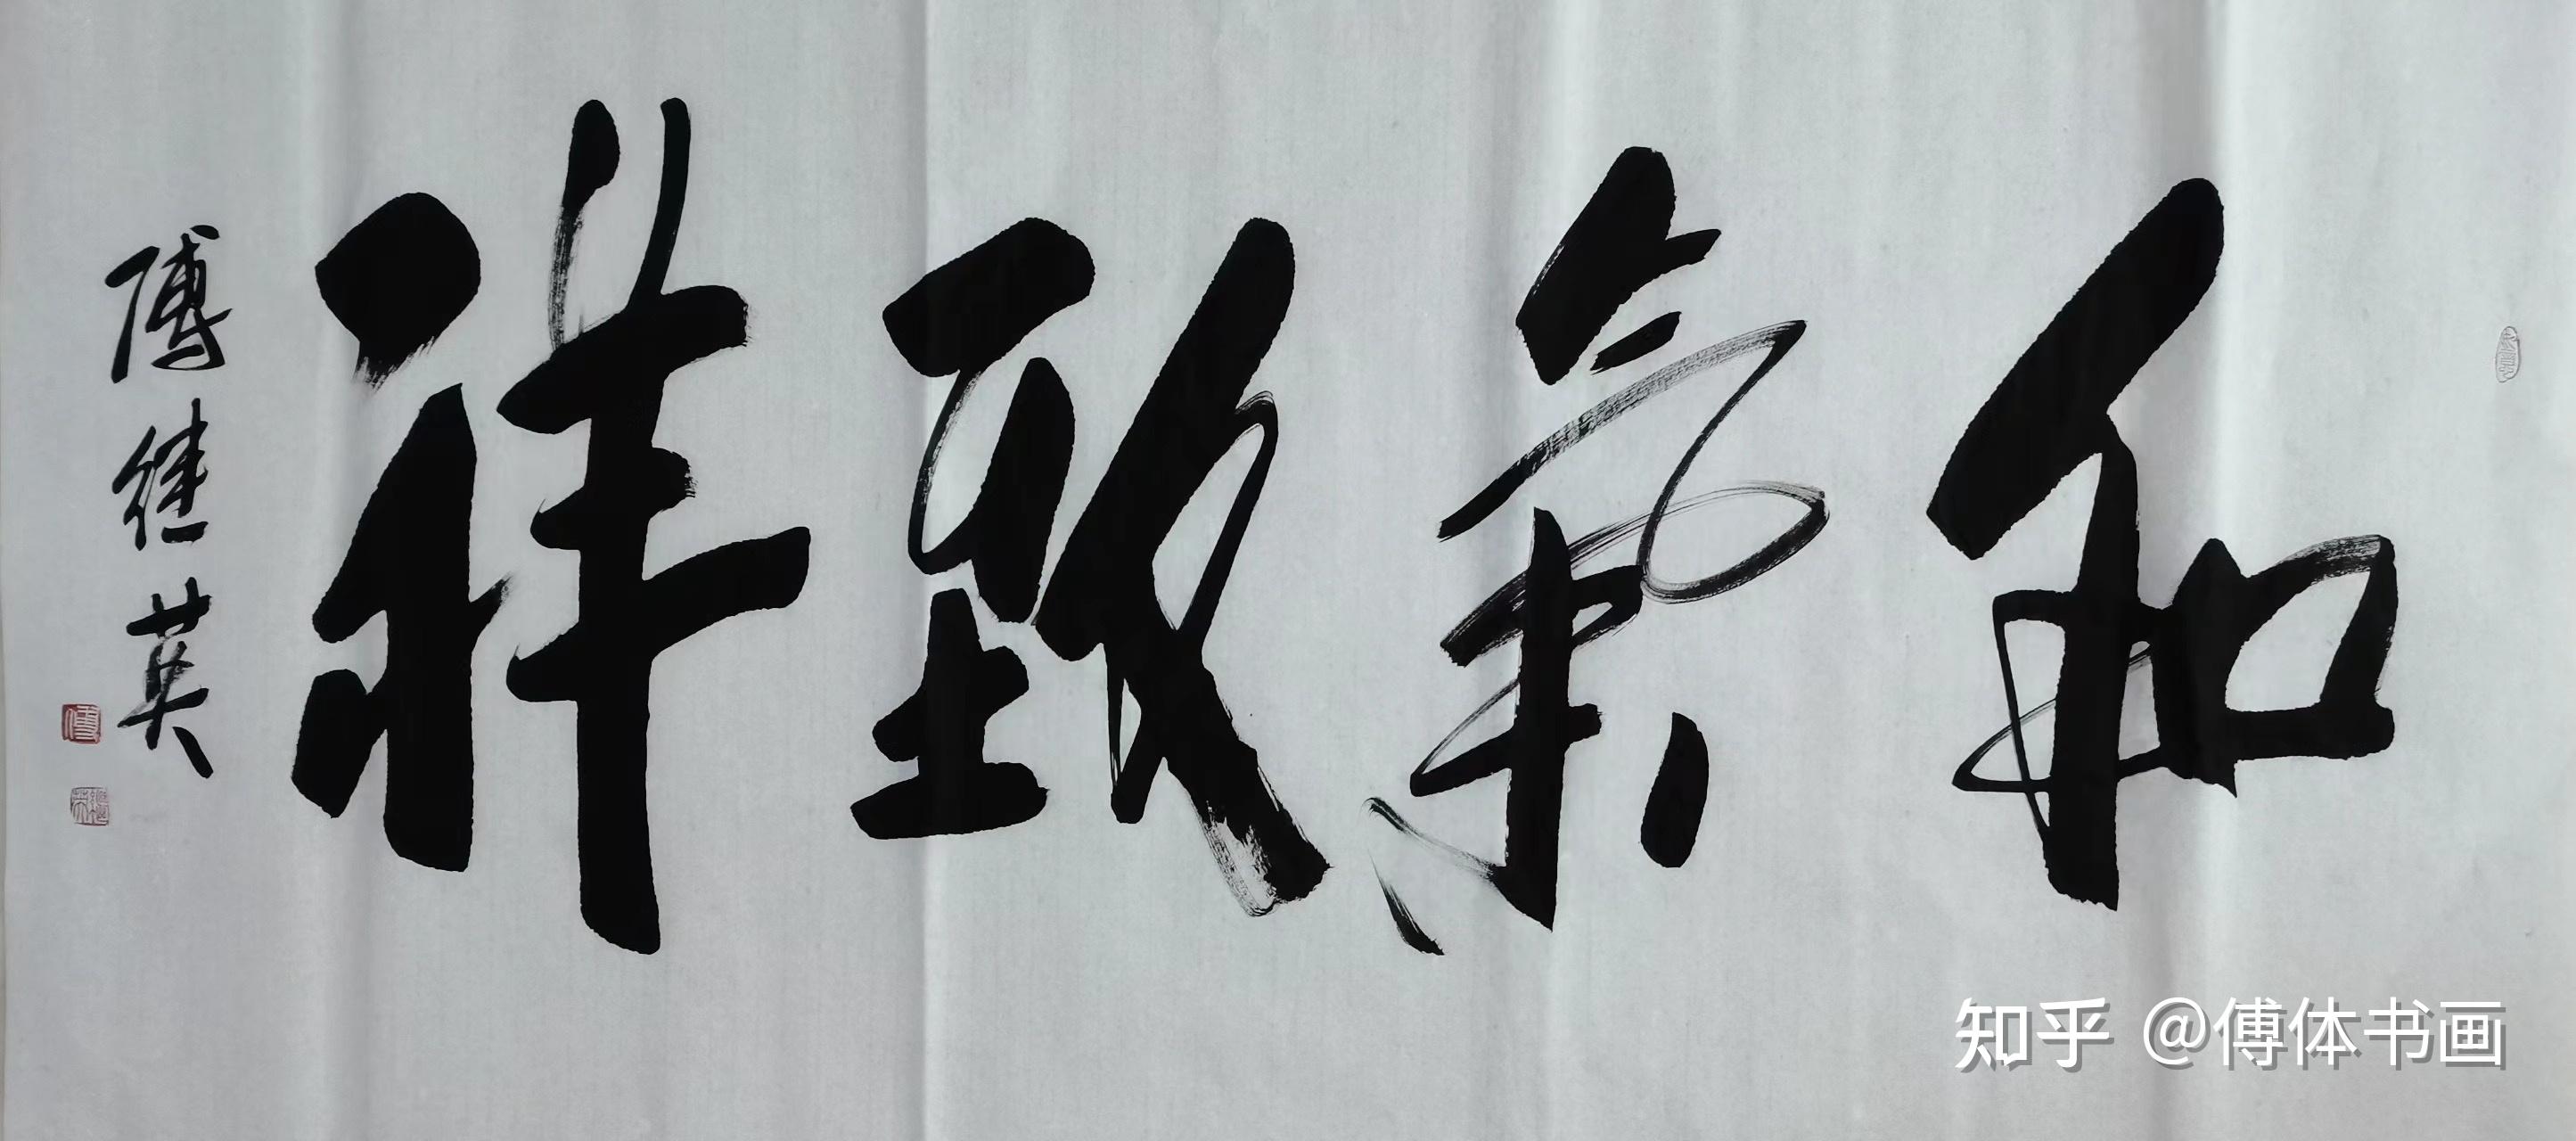 和氣致祥
傅继英
知乎 @傅体书画